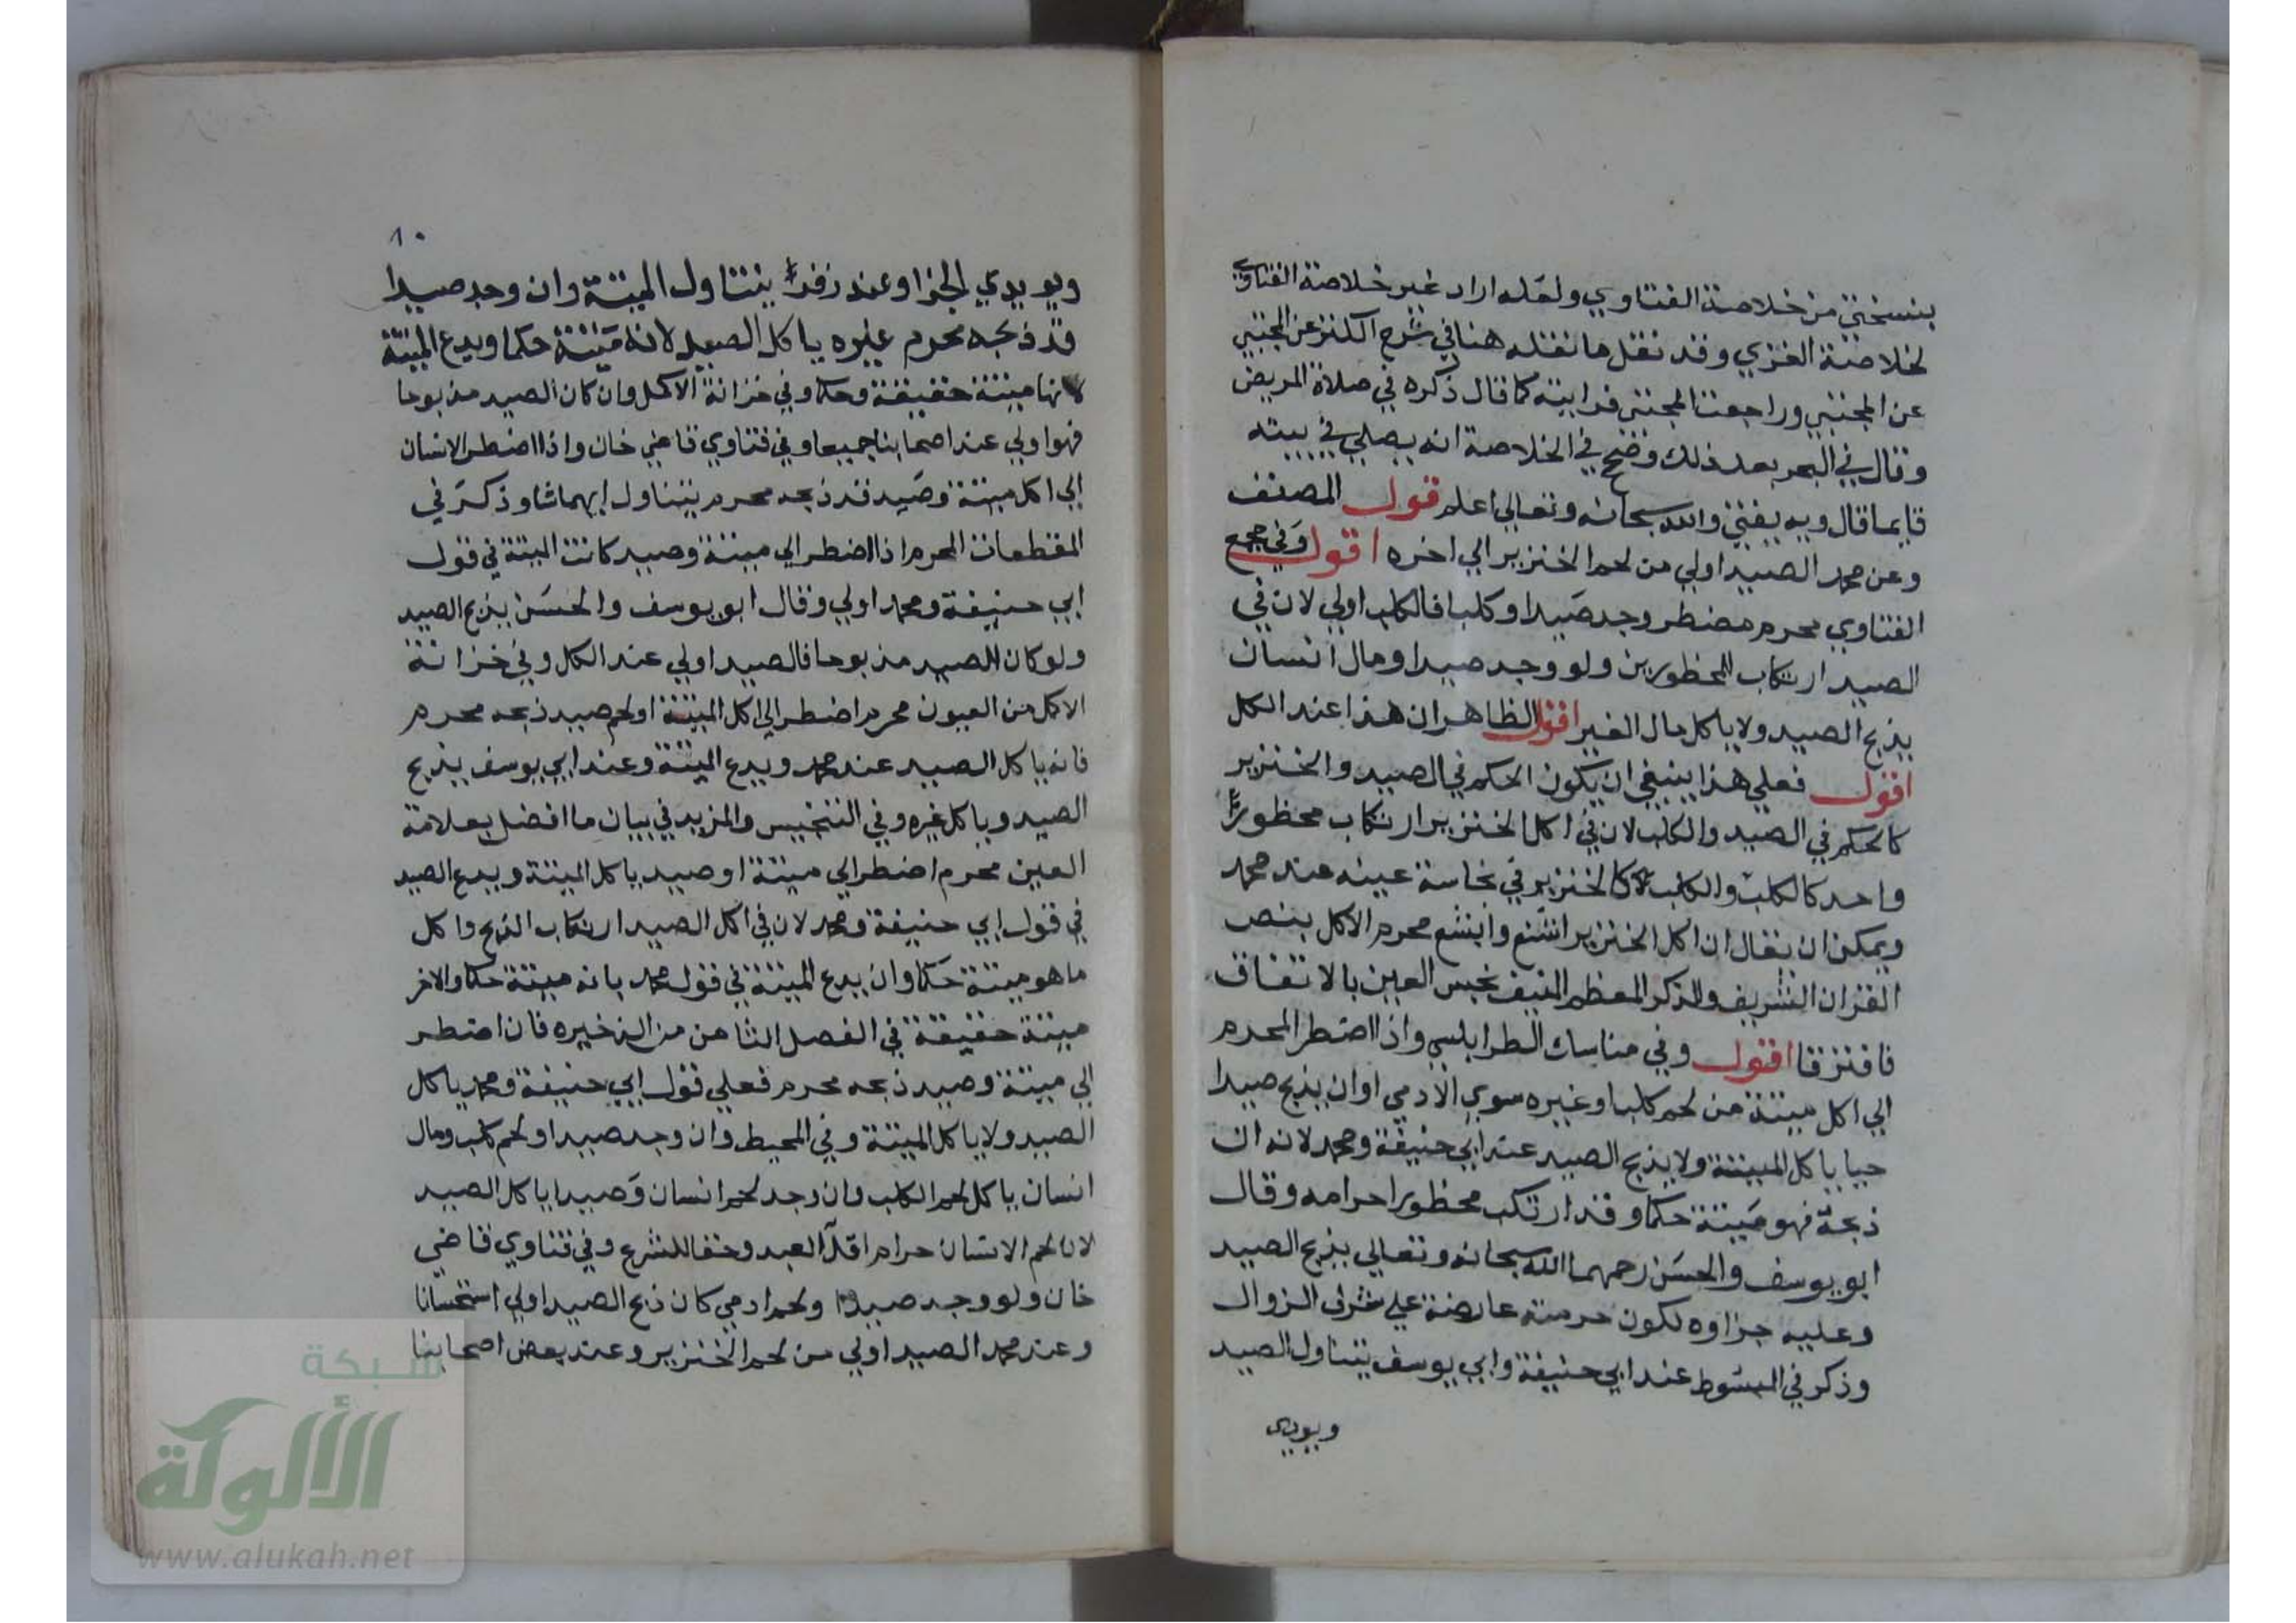 بنسختي من خلاصة الفتاوي ولعله اراد غير خلاصة الفتاوي
لخلاصة الغزي وقد نقل ما نقله هنا في شرح الكنز عن المجتبي
عن المجتبي وراجعت المجتبي فرايته كما قال ذكره في صلاة المريض
وقال في البحر بعد ذلك وضح في الخلاصة انه يصلي في بيته
قايما قال وبه يفتي والله سبحانه وتعالي اعلم قول المصنف
وعن محمد الصيد اولي من لحم الخنزير الي اخره اقول وفي مجمع
الفتاوي محرم مضطر وجد صيدا وكلبا فالكلب اولي لان في
الصيد ارتكاب المحظورين ولو وجد صيدا ومال انسان
يذبح الصيد ولا ياكل مال الغير اقول الظاهر ان هذا عند الكل
اقول فعلي هذا ينبغي ان يكون الحكم في الصيد والخنزير
كالحكم في الصيد والكلب لان في اكل الخنزير ارتكاب محظور
واحد كالكلب والكلب كالخنزير في نجاسة عينه عند محمد
ويمكن ان يقال ان اكل الخنزير اشنع وابشع محرم الاكل بنص
القران الشريف والذكر المعظم المنيف نجس العين بالاتفاق
فافترقا اقول وفي مناسك الطرابلسي واذا اضطر المحرم
الي اكل ميتة من لحم كلب او غيره سوي الادمي او ان يذبح صيدا
حيا ياكل الميتة ولا يذبح الصيد عند ابي حنيفة ومحمد لانه ان
ذبحه فهو ميتة حكما وقد ارتكب محظور احرامه وقال
ابو يوسف والحسن رحمهما الله سبحانه وتعالي يذبح الصيد
وعليه جزاوه لكون حرمته عارضة علي شرف الزوال
وذكر في المبسوط عند ابي حنيفة وابي يوسف يتناول الصيد
ويودي
١٠
ويودي الجزا وعند زفر يتناول الميتة وان وجد صيدا
قد ذبحه محرم غيره ياكل الصيد لانه ميتة حكما ويدع الميتة
لانها ميتة حقيقة وحكما وفي خزانة الاكمل وان كان الصيد مذبوحا
فهو اولي عند اصحابنا جميعا وفي فتاوي قاضي خان واذا اضطر الانسان
الي اكل ميتة وصيد قد ذبحه محرم يتناول ايهما شا وذكر في
المقطعات المحرم اذا اضطر الي ميتة وصيد كانت الميتة في قول
ابي حنيفة ومحمد اولي وقال ابو يوسف والحسن يذبح الصيد
ولو كان الصيد مذبوحا فالصيد اولي عند الكل وفي خزانة
الاكمل من العيون محرم اضطر الي اكل الميتة او لحم صيد ذبحه محرم
فانه ياكل الصيد عند محمد ويدع الميتة وعند ابي يوسف يذبح
الصيد وياكل غيره وفي التجنيس والمزيد في بيان ما افضل بعلامة
العين محرم اضطر الي ميتة او صيد ياكل الميتة ويدع الصيد
في قول ابي حنيفة ومحمد لان في اكل الصيد ارتكاب الذبح واكل
ما هو ميتة حكما وان يدع الميتة في قول محمد بانه ميتة حكما والاخر
ميتة حقيقة في الفصل الثامن من الذخيره فان اضطر
الي ميتة وصيد ذبحه محرم فعلي قول ابي حنيفة ومحمد ياكل
الصيد ولا ياكل الميتة وفي المحيط وان وجد صيدا ولحم كلب ومال
انسان ياكل لحم الكلب وان وجد لحم انسان وصيدا ياكل الصيد
لان لحم الانسان حرام العبد وحقا للشرع وفي فتاوي قاضي
خان ولو وجد صيدا ولحم ادمي كان ذبح الصيد اولي استحسانا
وعند محمد الصيد اولي من لحم الخنزير وعند بعض اصحابنا
شبكة
الألوكة
www.alukah.net